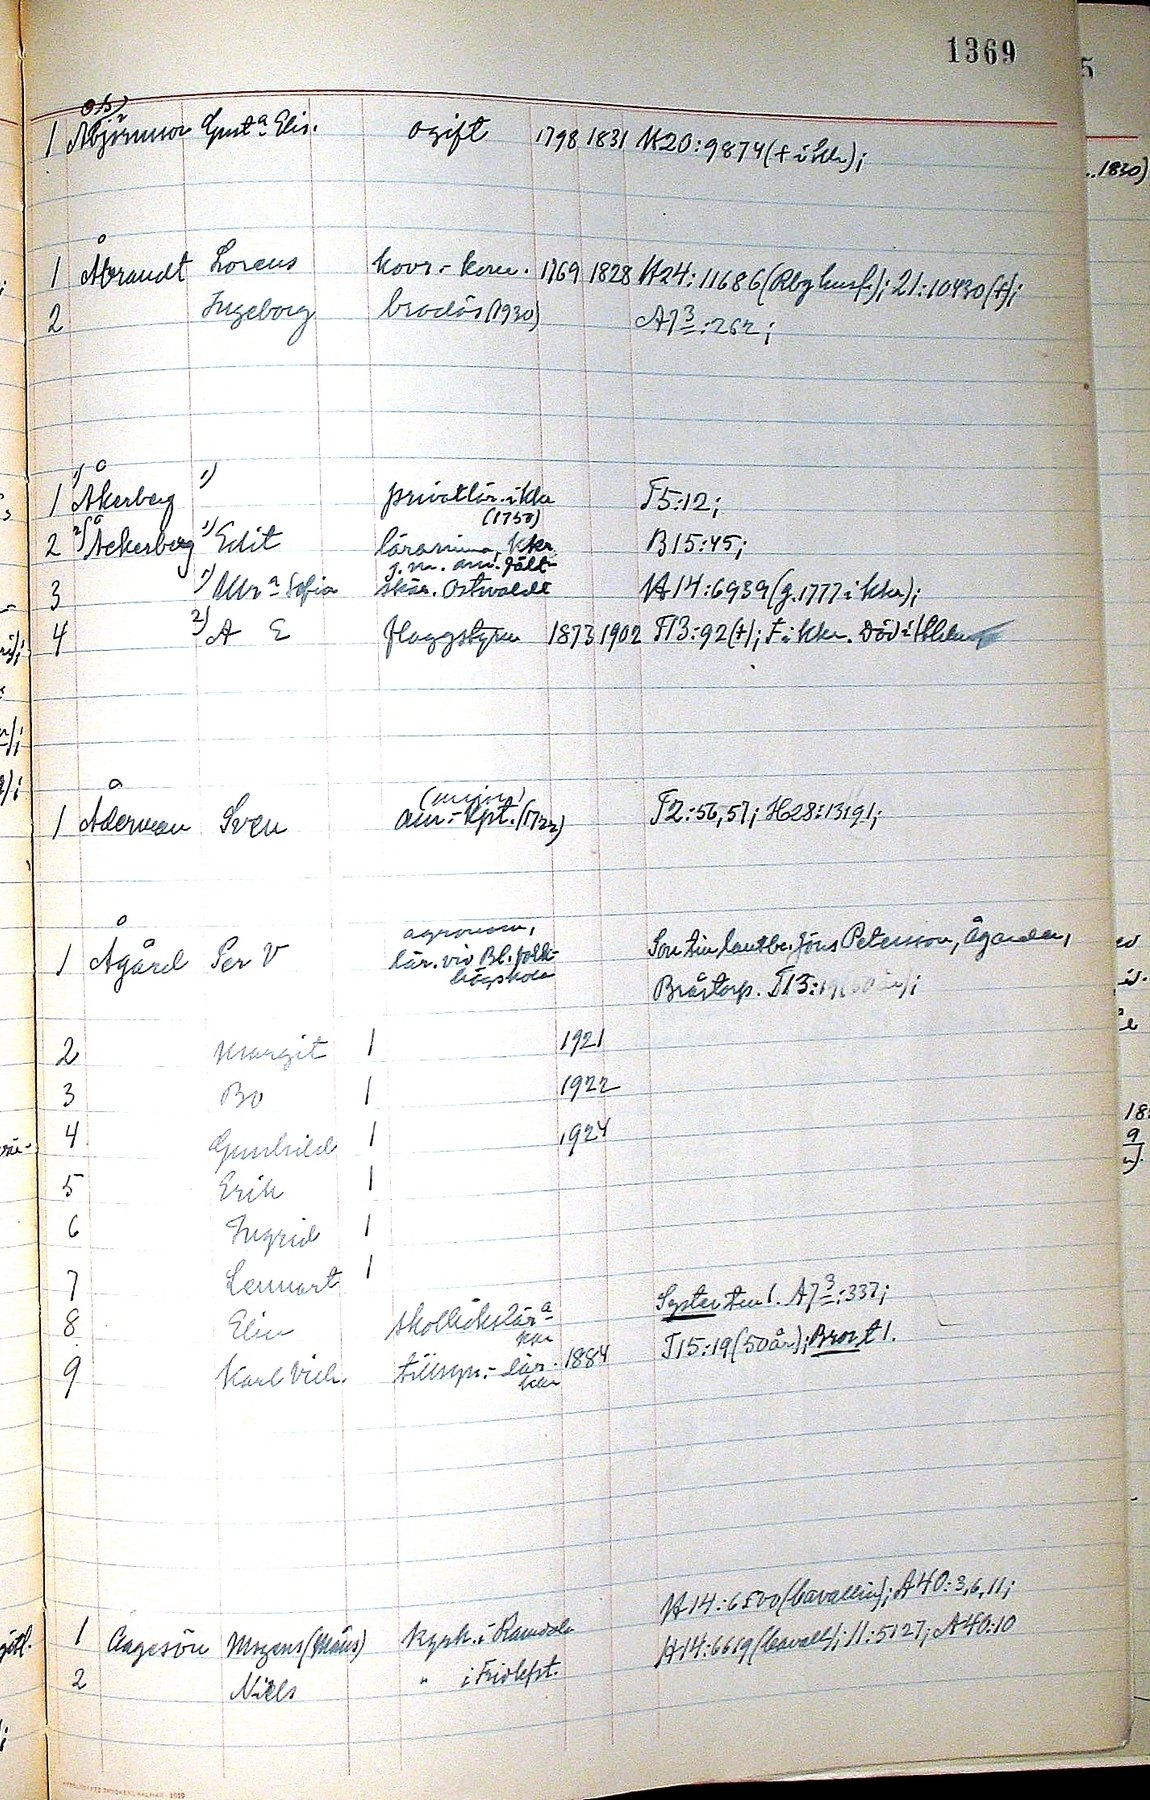 1369
1 Åbjörnsson Gust.a Elis. ogift 1798 1831 H20:9874(† i Kkr);
1 Åbrandt Lorens hovr.-kom. 1769 1828 H24:11686(Rbg husf.); 21:10430(†);
2 Ingeborg brodös (1930) A7 3:262;
1 1) Åkerberg 1) privatlär. i Kkr (1750) T5:12;
2 2) Åckerberg 1) Edit lärarinna, Kkr B15:45;
3 1) Ulr.a Sofia g. m. am. fält-
skär. Ostwaldt H14:6939(g. 1777 i Kkr);
4 2) A E flaggstyrm 1873 1902 T13:92(†); F. i Kkr. Död i
(major)
1 Åkerman Sven am.-Kpt. (1722) T2:56,57; H28:13191;
agronom,
1 Ågård Per V lär. vid Bl. folk-
högskola Son till lantbr. Jöns Petersson, Ågården,
Bråstorp. T15:19(50 år);
2 Margit 1 1921
3 Bo 1 1922
4 Gunhild 1 1924
5 Erik 1
6 Ingrid 1
7 Lennart 1
8 Elin skolkökslär.a
Kkr Syster till 1. A7 3:337;
9 Karl Vilh. tillsyn.-lär. 1884
Kkr T15:19(50 år); Bror t 1.
1 Aagesön Mogens (Måns) Kyrk. i Ramdala H14:6500(Cavallin); A40:3,6,11;
2 Niels " i Fridlefst. H14:6619(Cavall); 11:5127; A40:10